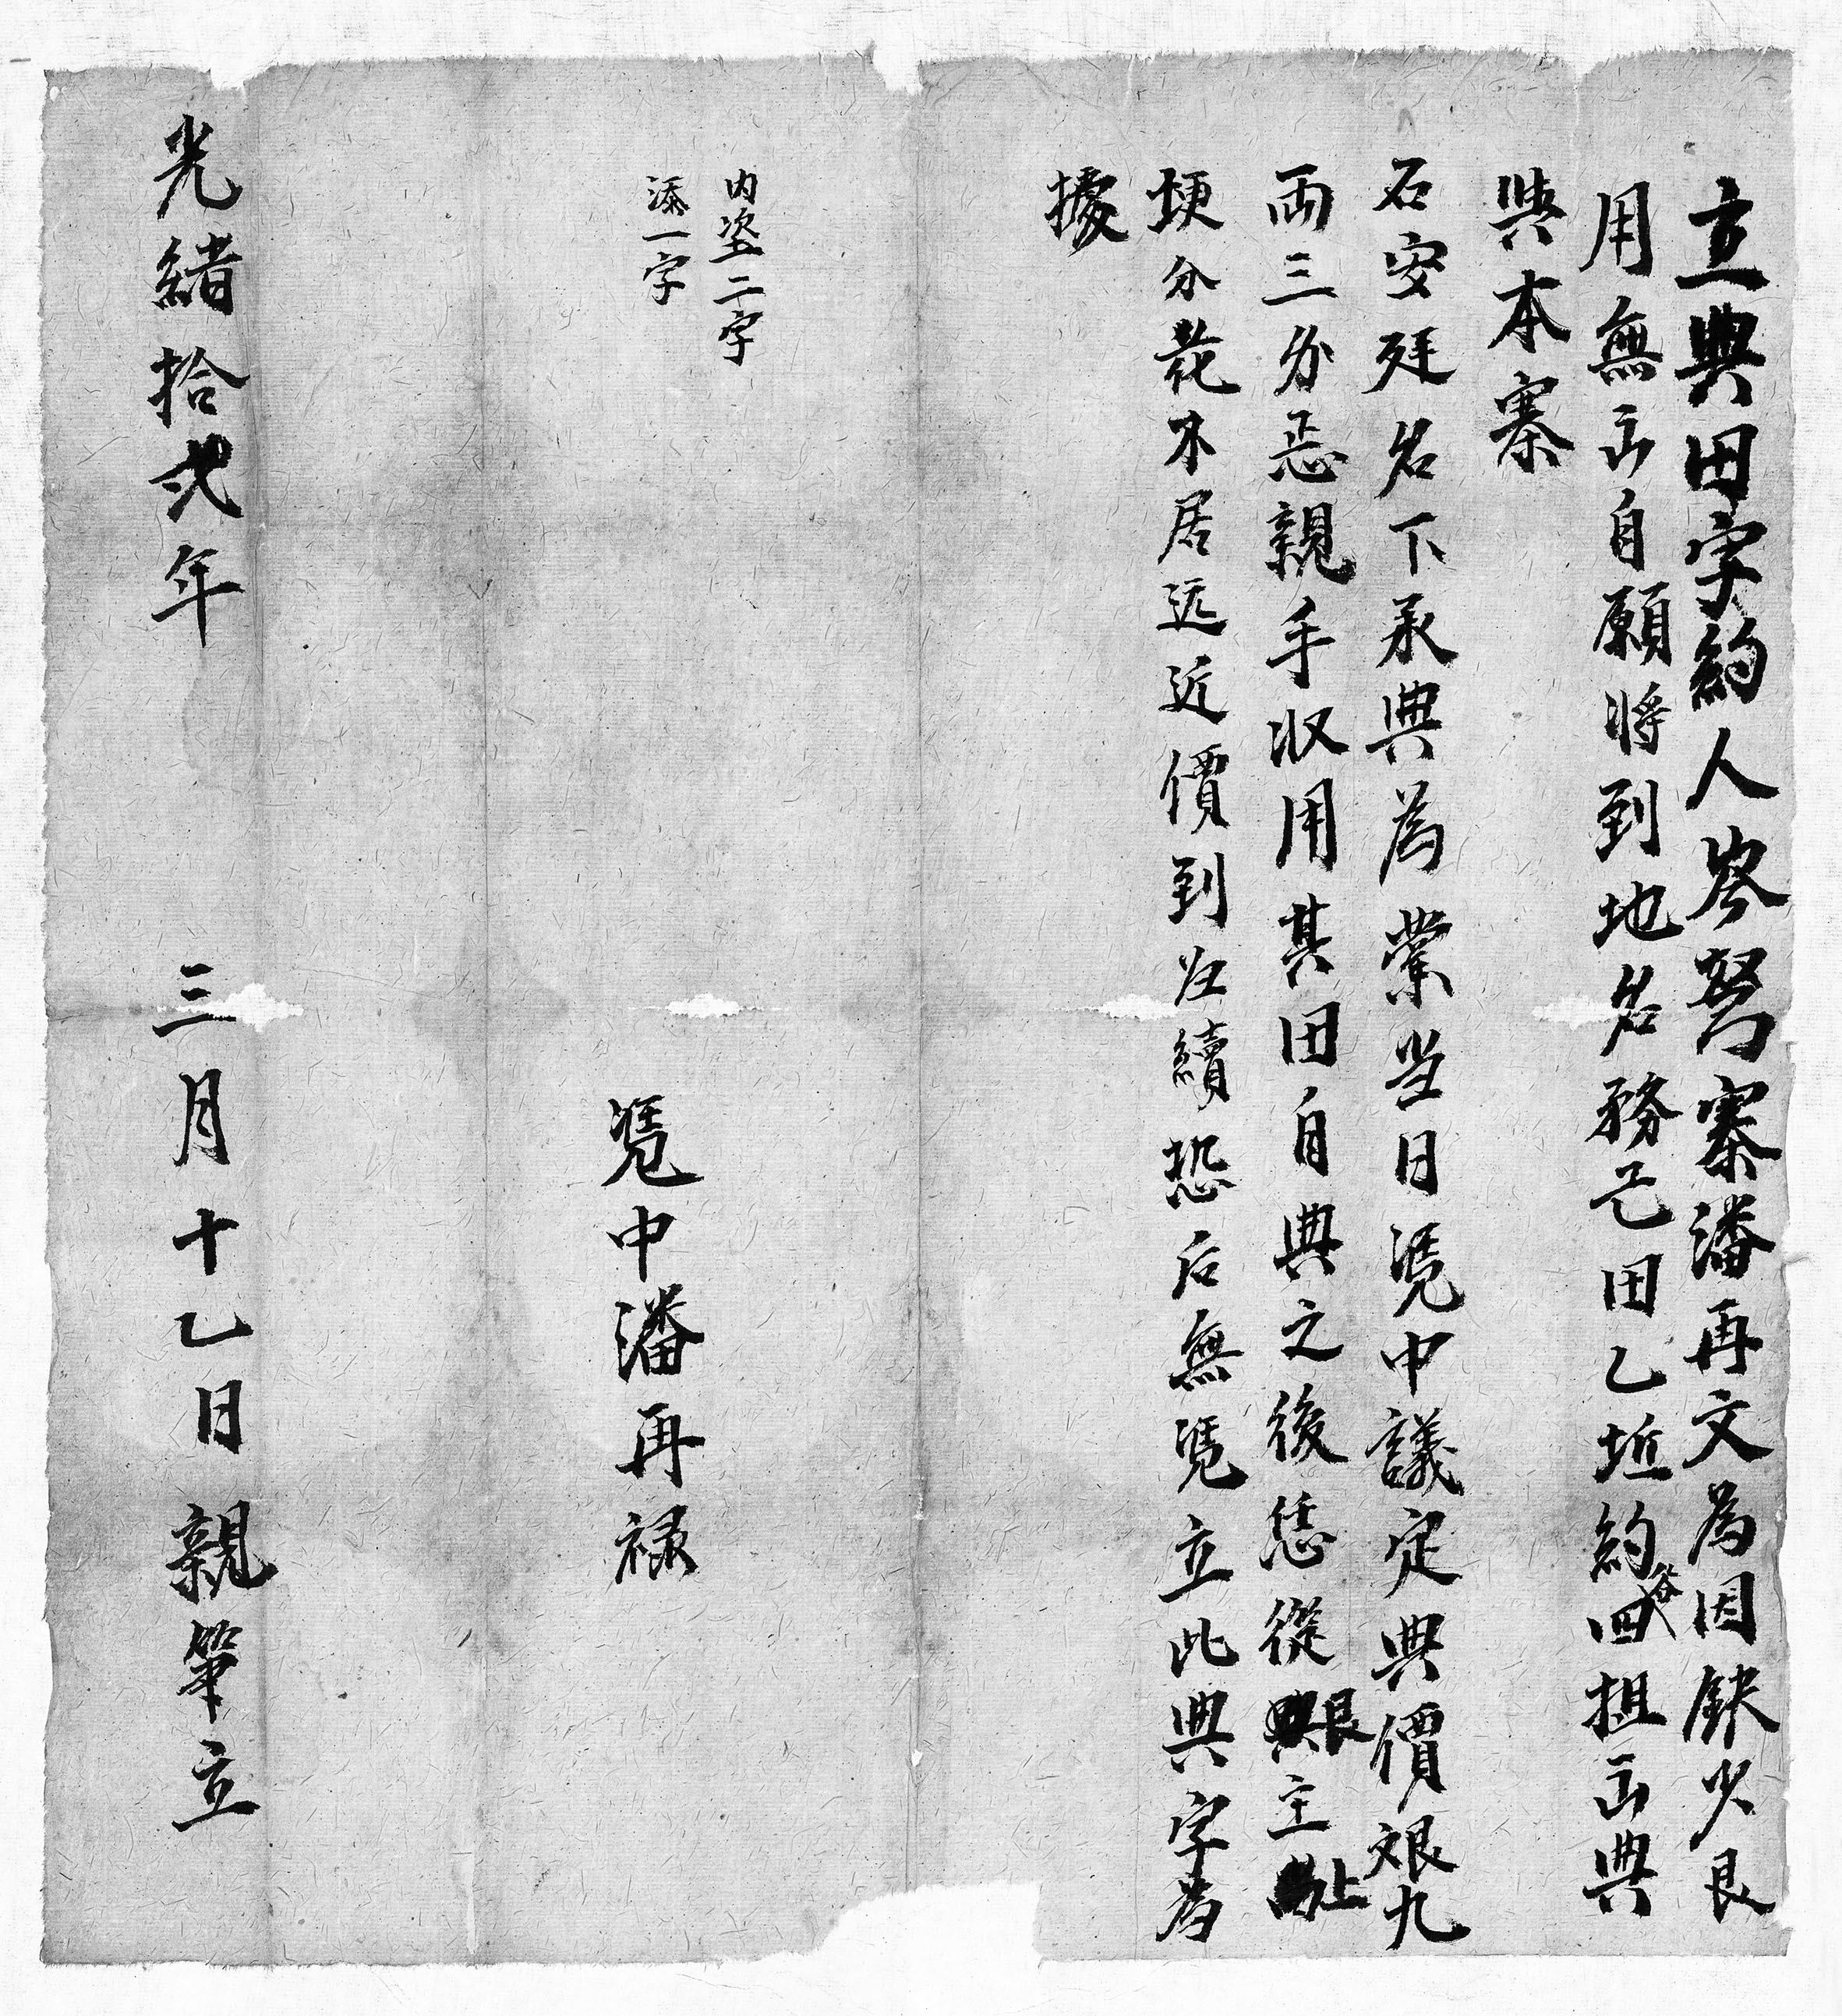 立典田字約人岑努寨潘再文為因缺少艮
用無云自願將到地名務已田乙坵約谷四担云典
與本寨
石安廷名下承典為業当日凴中議定典價艰九
両三分忎親手収用其田自典之後恁從艮主上
埂分花不居远近價到归續恐后無凴立此典字為
據
内塗二字
添一字
凴中潘再祿
光緒拾弍年 三月十乙日親筆立